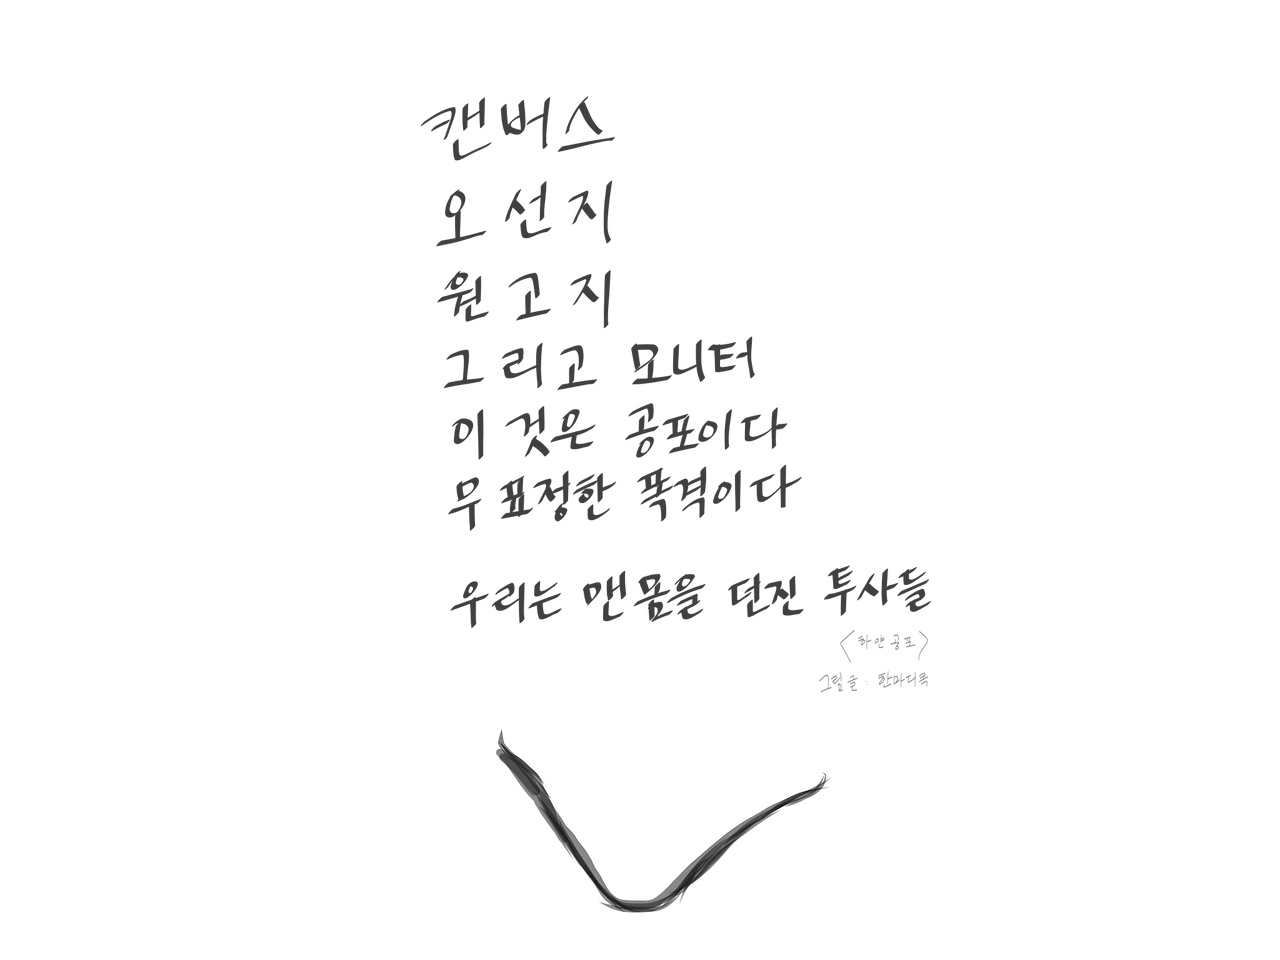 캔버스
오선지
원고지
그리고 모니터
이것은 공포이다
무표정한 폭격이다
우리는 맨몸을 던진 투사들
<하얀공포>
그림글 : 한마디콕